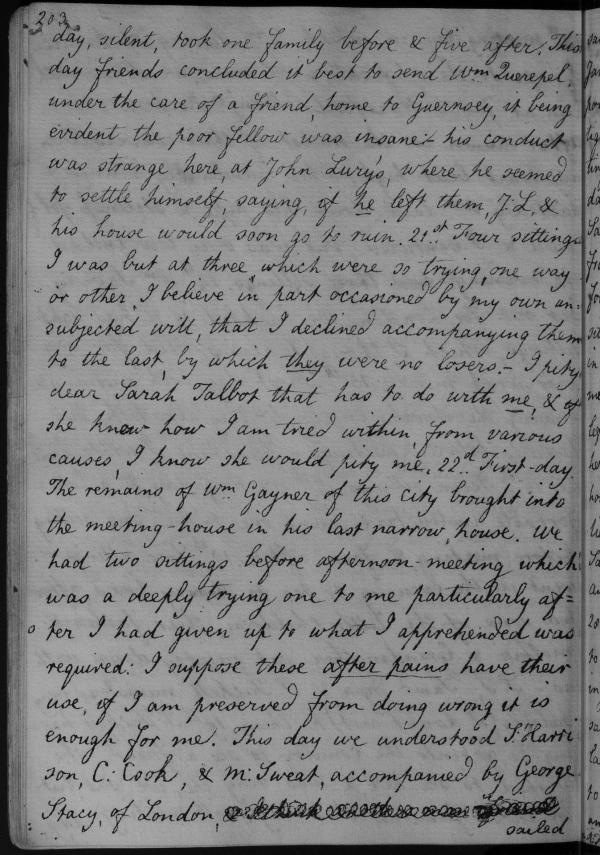 203
day, silent, took one family before & five after. This
day friends concluded it best to send Wm Querepel,
under the care of a friend, home to Guernsey, it being
evident the poor fellow was insane:- his conduct
was strange here, at John Lury's, where he seemed
to settle himself, saying, if he left them, J: L, &
his house would soon go to ruin. 21st Four sittings
I was but at three, which were so trying, one way
or other, I believe in part occasioned by my own un-
subjected will, that I declined accompanying them
to the last, by which they were no losers.- I pity
dear Sarah Talbot that has to do with me, & if
she knew how I am tried within, from various
causes, I know she would pity me. 22d First-day.
The remains of Wm Gayner of this city brought into
the meeting-house in his last narrow, house. We
had two sittings before afternoon-meeting which
was a deeply trying one to me particularly af=
ter I had given up to what I apprehended was
required: I suppose these after pains have their
use, if I am preserved from doing wrong it is
enough for me. This day we understood S: Harri
son, C: Cook, & M: Sweat, accompanied by George
Stacy, of London,
sailed